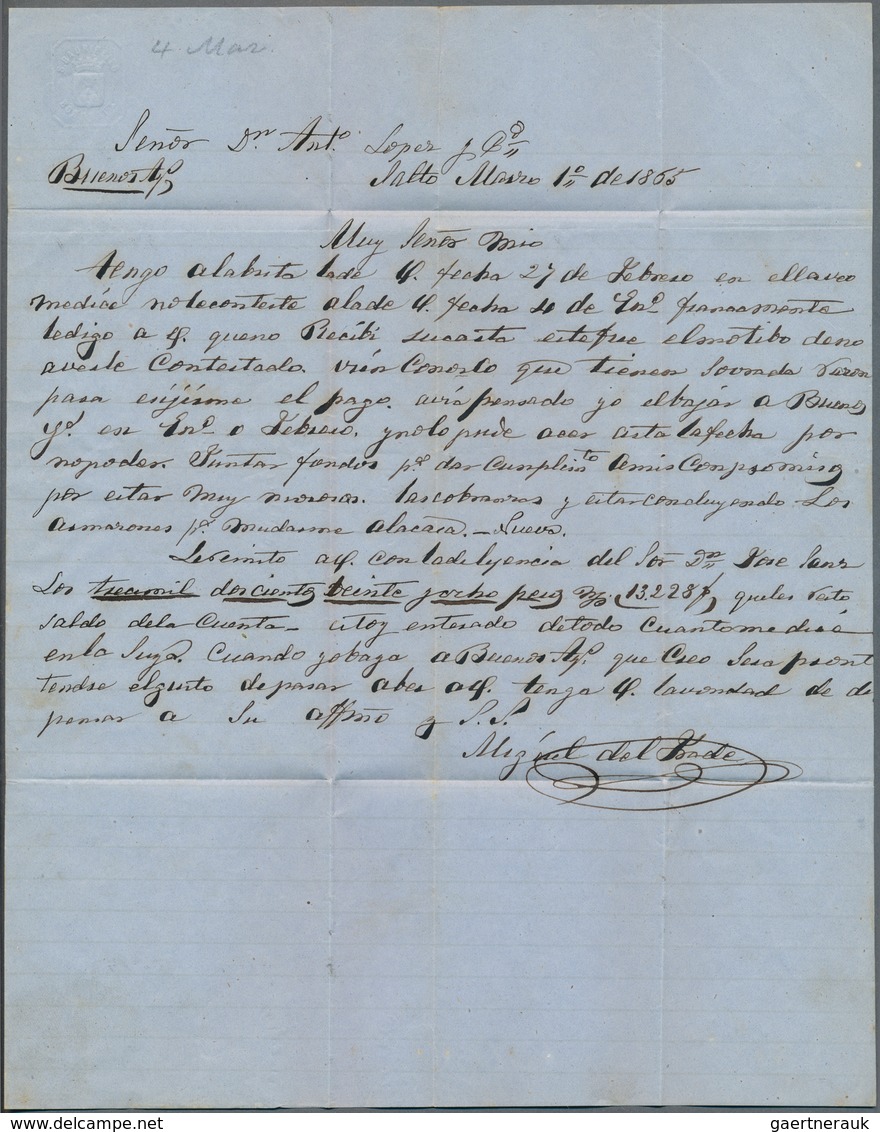 4 Mar.
Señor Dn. Anto. Lopez y Ca.
Buenos Ays.
Salto Marzo 1o. de 1865
Muy Señor Mio
tengo alabista lade V. fecha 27 de Febrero en ellaveo
medice noleconteste alade V. fecha 4 de Eno. francamente
ledigo a V. queno Recibi sucarta estefue elmotibo deno
averle Contestado. que tienen Sovrada
para esijirme el pago. avia pensado yo elbajár a Buenos
Ys. en Eno. o Febrero. ynolo pude acer asta lafecha por
nopoder. Juntar fondos pa. dar Cumplimto. Amis Compromisos
por estar Muy morosas. lascobranzas y estarconcluyendo Los
Armazones pa. Mudarme alacasa. – Nueva.
Leremito aV. con ladelijencia del Sor. Dn. Jose Sanz
Los trecemil doscientos beinte yocho pesos (13.228 queles resto
saldo dela Cuenta – estoy enterado detodo Cuantomedice
enla Suya. Cuando yobaya aBuenos Ays. que Creo Sera pront
tendre elgusto depasar aber aV. tenga V. lavondad de di
pensar a Su affmo y S. S.
Migúel del Prade
gaertnerauk